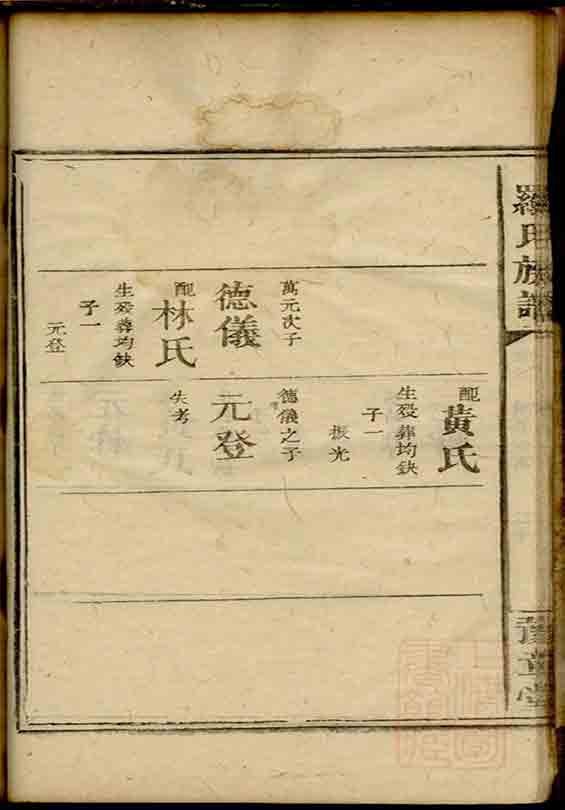 羅氏族譜
豫章堂
萬元次子
德儀
配
林氏
生殁葬均缺
子一
元登
配
黃氏
生殁葬均缺
子一
振光
德儀之子
元登
失考
上海圖書館藏